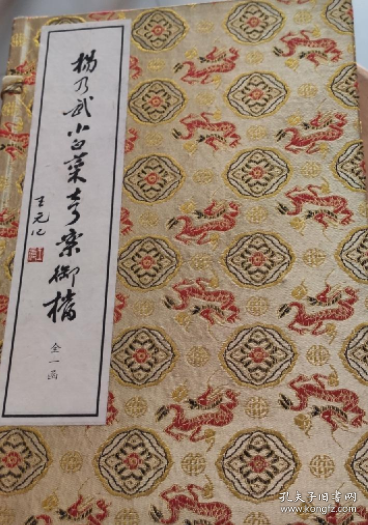 楊乃武小白菜奇案御檔
王元化
全一函
孔夫子旧书网
www.kongfz.com